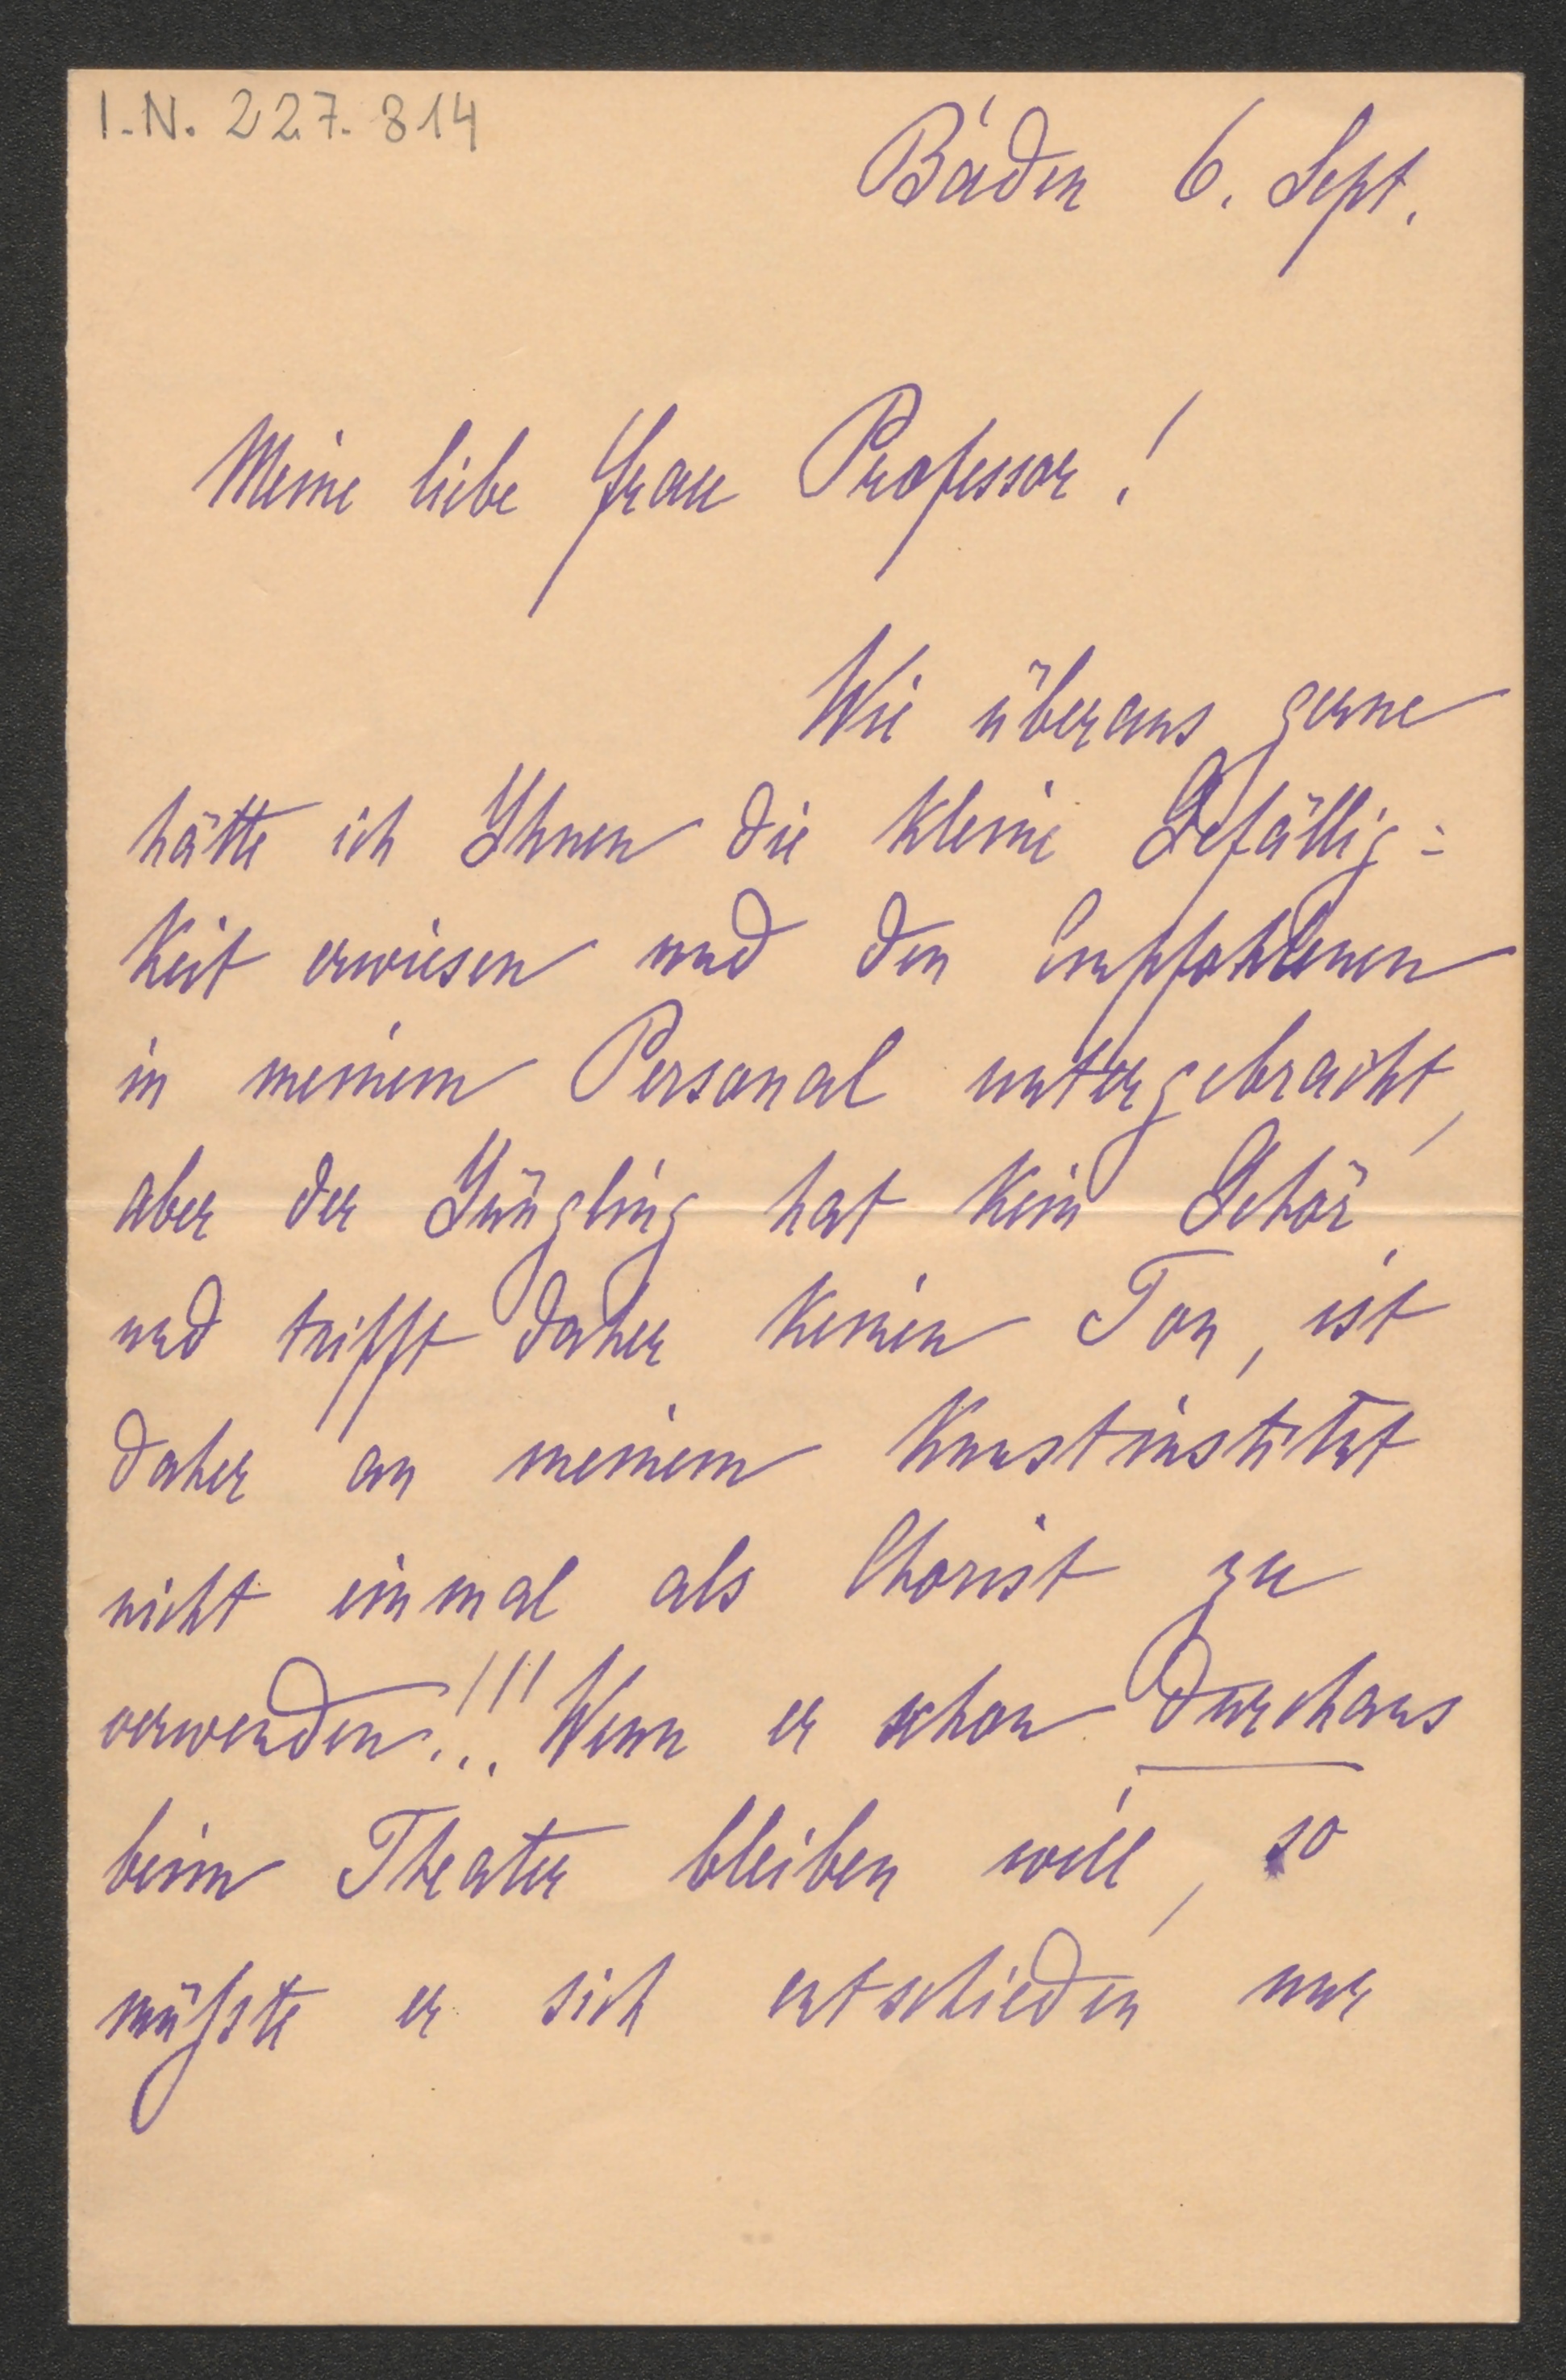 I.N. 227.814
Baden 6. Sept.
Meine liebe Frau Professor!
Wie überaus gerne
hätte ich Ihnen die kleine Gefällig=
keit erwiesen und den Empfohlenen
in meinem Personal untergebracht,
aber der Jüngling hat kein Gehör,
und trifft daher keinen Ton, ist
daher an meinem Kunstinstitut
nicht einmal als Chorist zu
verwenden!!! Wenn er schon durchaus
beim Theater bleiben will, so
müßste er sich entschieden nur